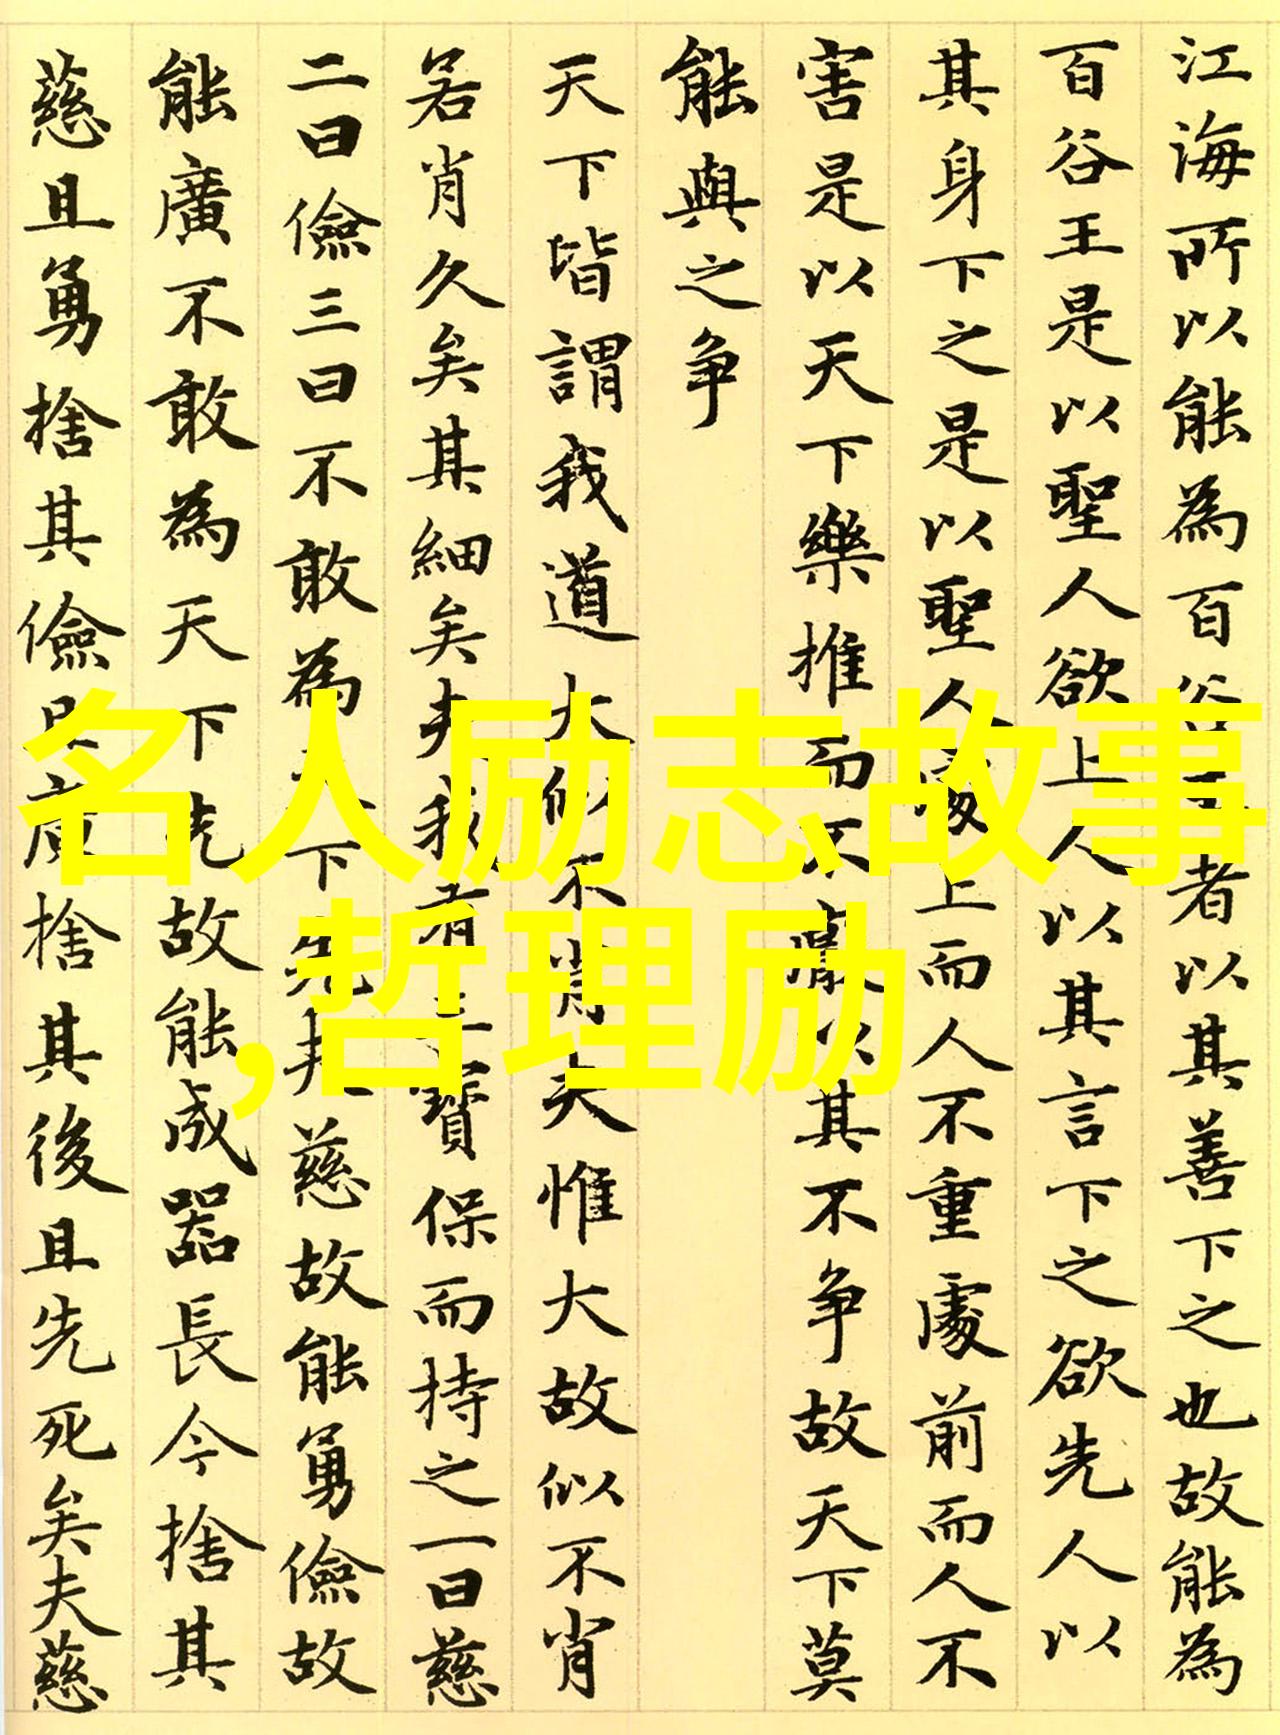 江海所以能為百谷王者以其善下之也故能為
百谷王是以聖人欲上人以其言下之欲先人以
其身下之是以聖人處上而人不重處前而人不
害是以天下樂推而不厭以其不争故天下莫
能與之争
天下皆謂我道大似不肖夫惟大故似不肖
若肖久矣其細矣夫我有三寶保而持之一曰慈
二曰儉三曰不敢為天下先夫慈故能勇儉故
能廣不敢為天下先故能成器長今捨其
慈且勇捨其儉且廣捨其後且先死矣夫慈
名人励志故事
,哲理励